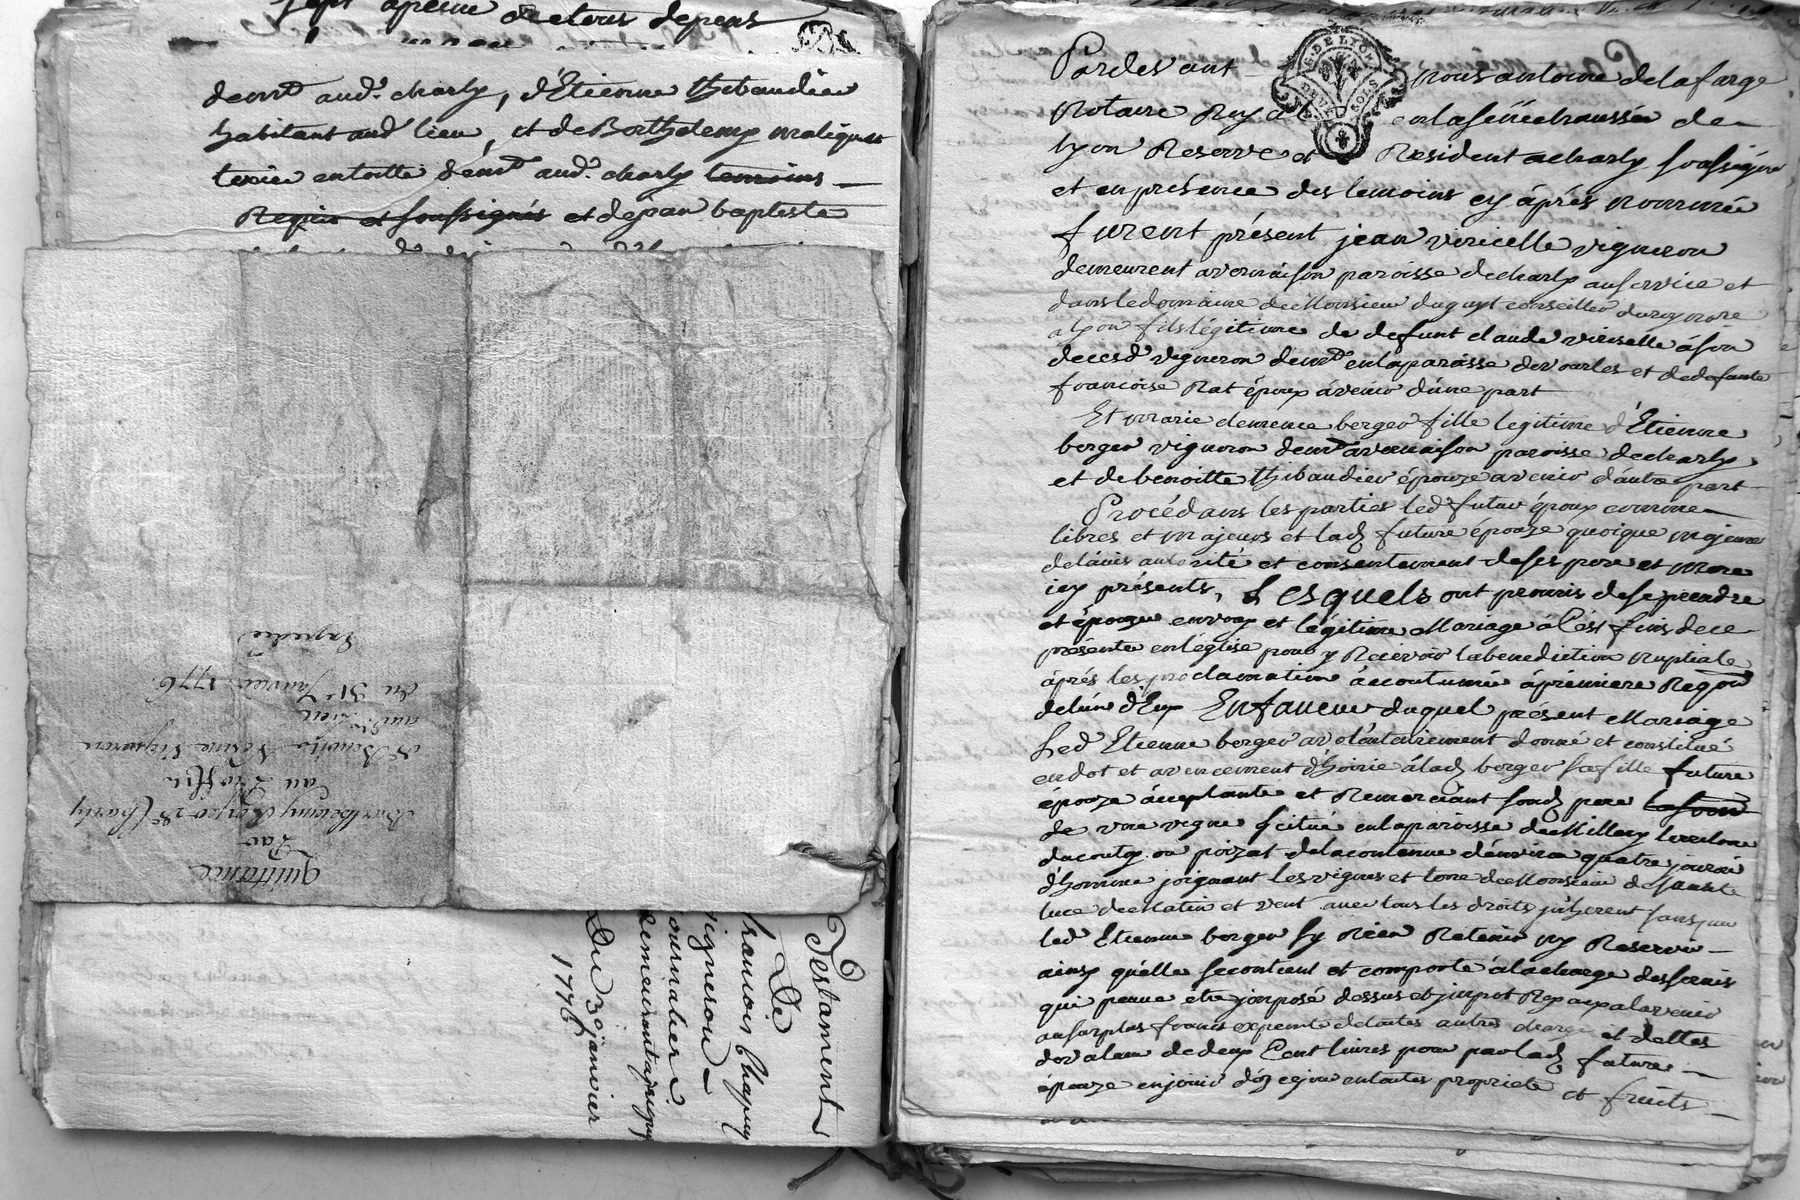 sept apresme de tous depens
demt audt. charly, d'Etienne thibaudier
habitant audt lieu, et de Barthelemy maligeat
texier entoille demt audt. charly temoins
Requis et soussignés et de jean baptiste
quittance
Par
Barthelemy de Charly
au Proffit
de Benoist Vigneron
audt. Lieu
du 31e Janvier 1776
Expedié
Testament
De
francois Chapuy
vigneron
journalier
demeurant a
Du 30 janvier
1776
G. DE LYON
DEUX SOLS
Pardevant nous antoine delafarge
Notaire Royal en la sénéchaussée de
lyon Reservé et Resident a charly soussigné
et en présence des temoins cy après nommée
furent présent jean viricelle vigneron
demeurent a vernaison paroisse de charly au service et
dans le domaine de Monsieur duguyt conseiller du roy
a lyon fils légitime de defunt claude viriselle à son
deced vigneron demt en la paroisse de vourles et de defunte
francoise Rat époux avenir d'une part
Et marie clemence berger fille legitime d'Étienne
berger vigneron demt a vernaison paroisse de charly
et de benoitte thibaudier épouze avenir d'autre part
Procédans les parties led futur époux comme
libres et majeurs et lad future épouze quoique majeure
de lavis autorité et consentement de ses pere et mere
icy présents, Lesquels ont promis de se prendre
et épouzer en vray et légitime Mariage à l'est fins de ce
présenter en l'église pour y Recevoir la benediction nuptiale
après les proclamation accoutumée à premiere Reqon
de lun d'Eux En faveur duquel présent Mariage
Led Etienne berger a volontairement donné et constitué
en dot et avencement d'hoirie à lad berger sa fille future
épouze acceptante et Remerciant sond pere la somme
de une vigne scitué en la paroisse de Millery
du coutoy ou poizat de la contenue d'environ quatre journée
d'homme joignant les vignes et terre de Monsieur de sainte
luce de Matin et vent avec tous les droits sans que
led Etienne berger sy Rien Retenir ny Reserver
ainsy quelle se contient et comporte à la charge des servis
qui peuve être jmposé dessus et jmpot Royaux a lavenir
au surplus franc exempte de toutes autres charge et dettes
de valeur de deux Cent livres pour par lad future
épouze en jouir dez ce jour en toutes propriete et fruits